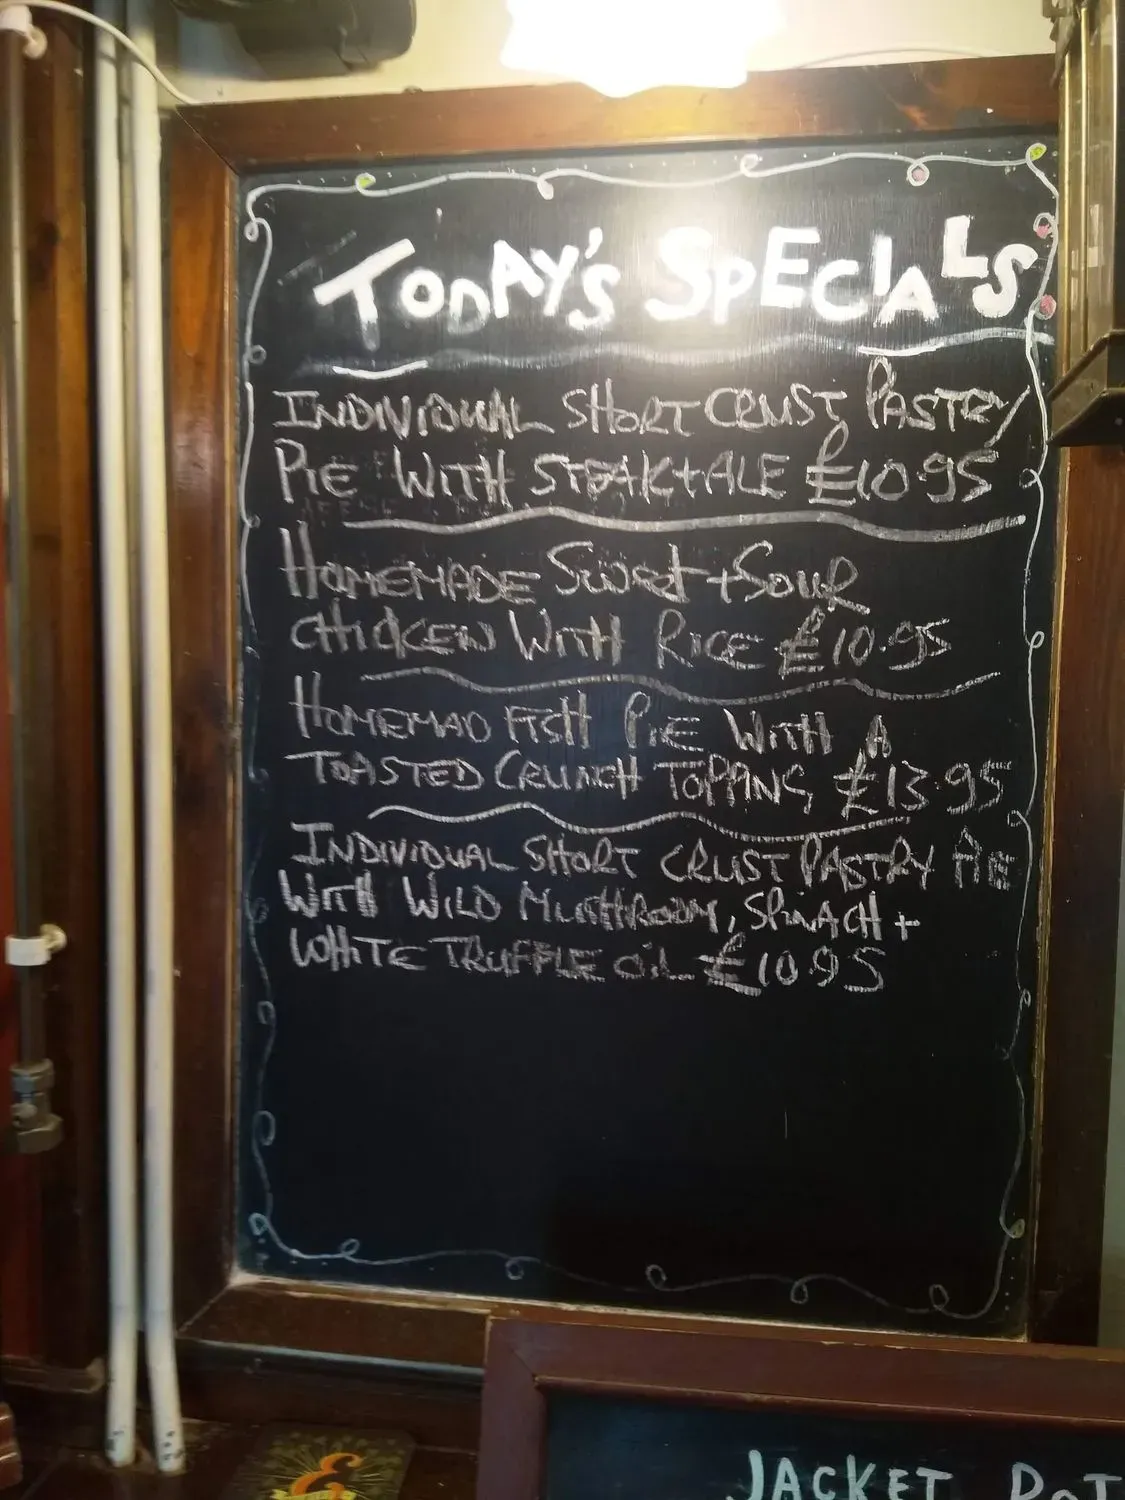 TODAY'S SPECIALS
INDIVIDUAL SHORT CRUST PASTRY
PIE WITH STEAK + ALE £10.95
HOMEMADE SWEET + SOUR
CHICKEN WITH RICE £10.95
HOMEMAD FISH PIE WITH A
TOASTED CRUNCH TOPPING £13.95
INDIVIDUAL SHORT CRUST PASTRY PIE
WITH WILD MUSHROOM, SPINACH +
WHITE TRUFFLE OIL £10.95
JACKET POT